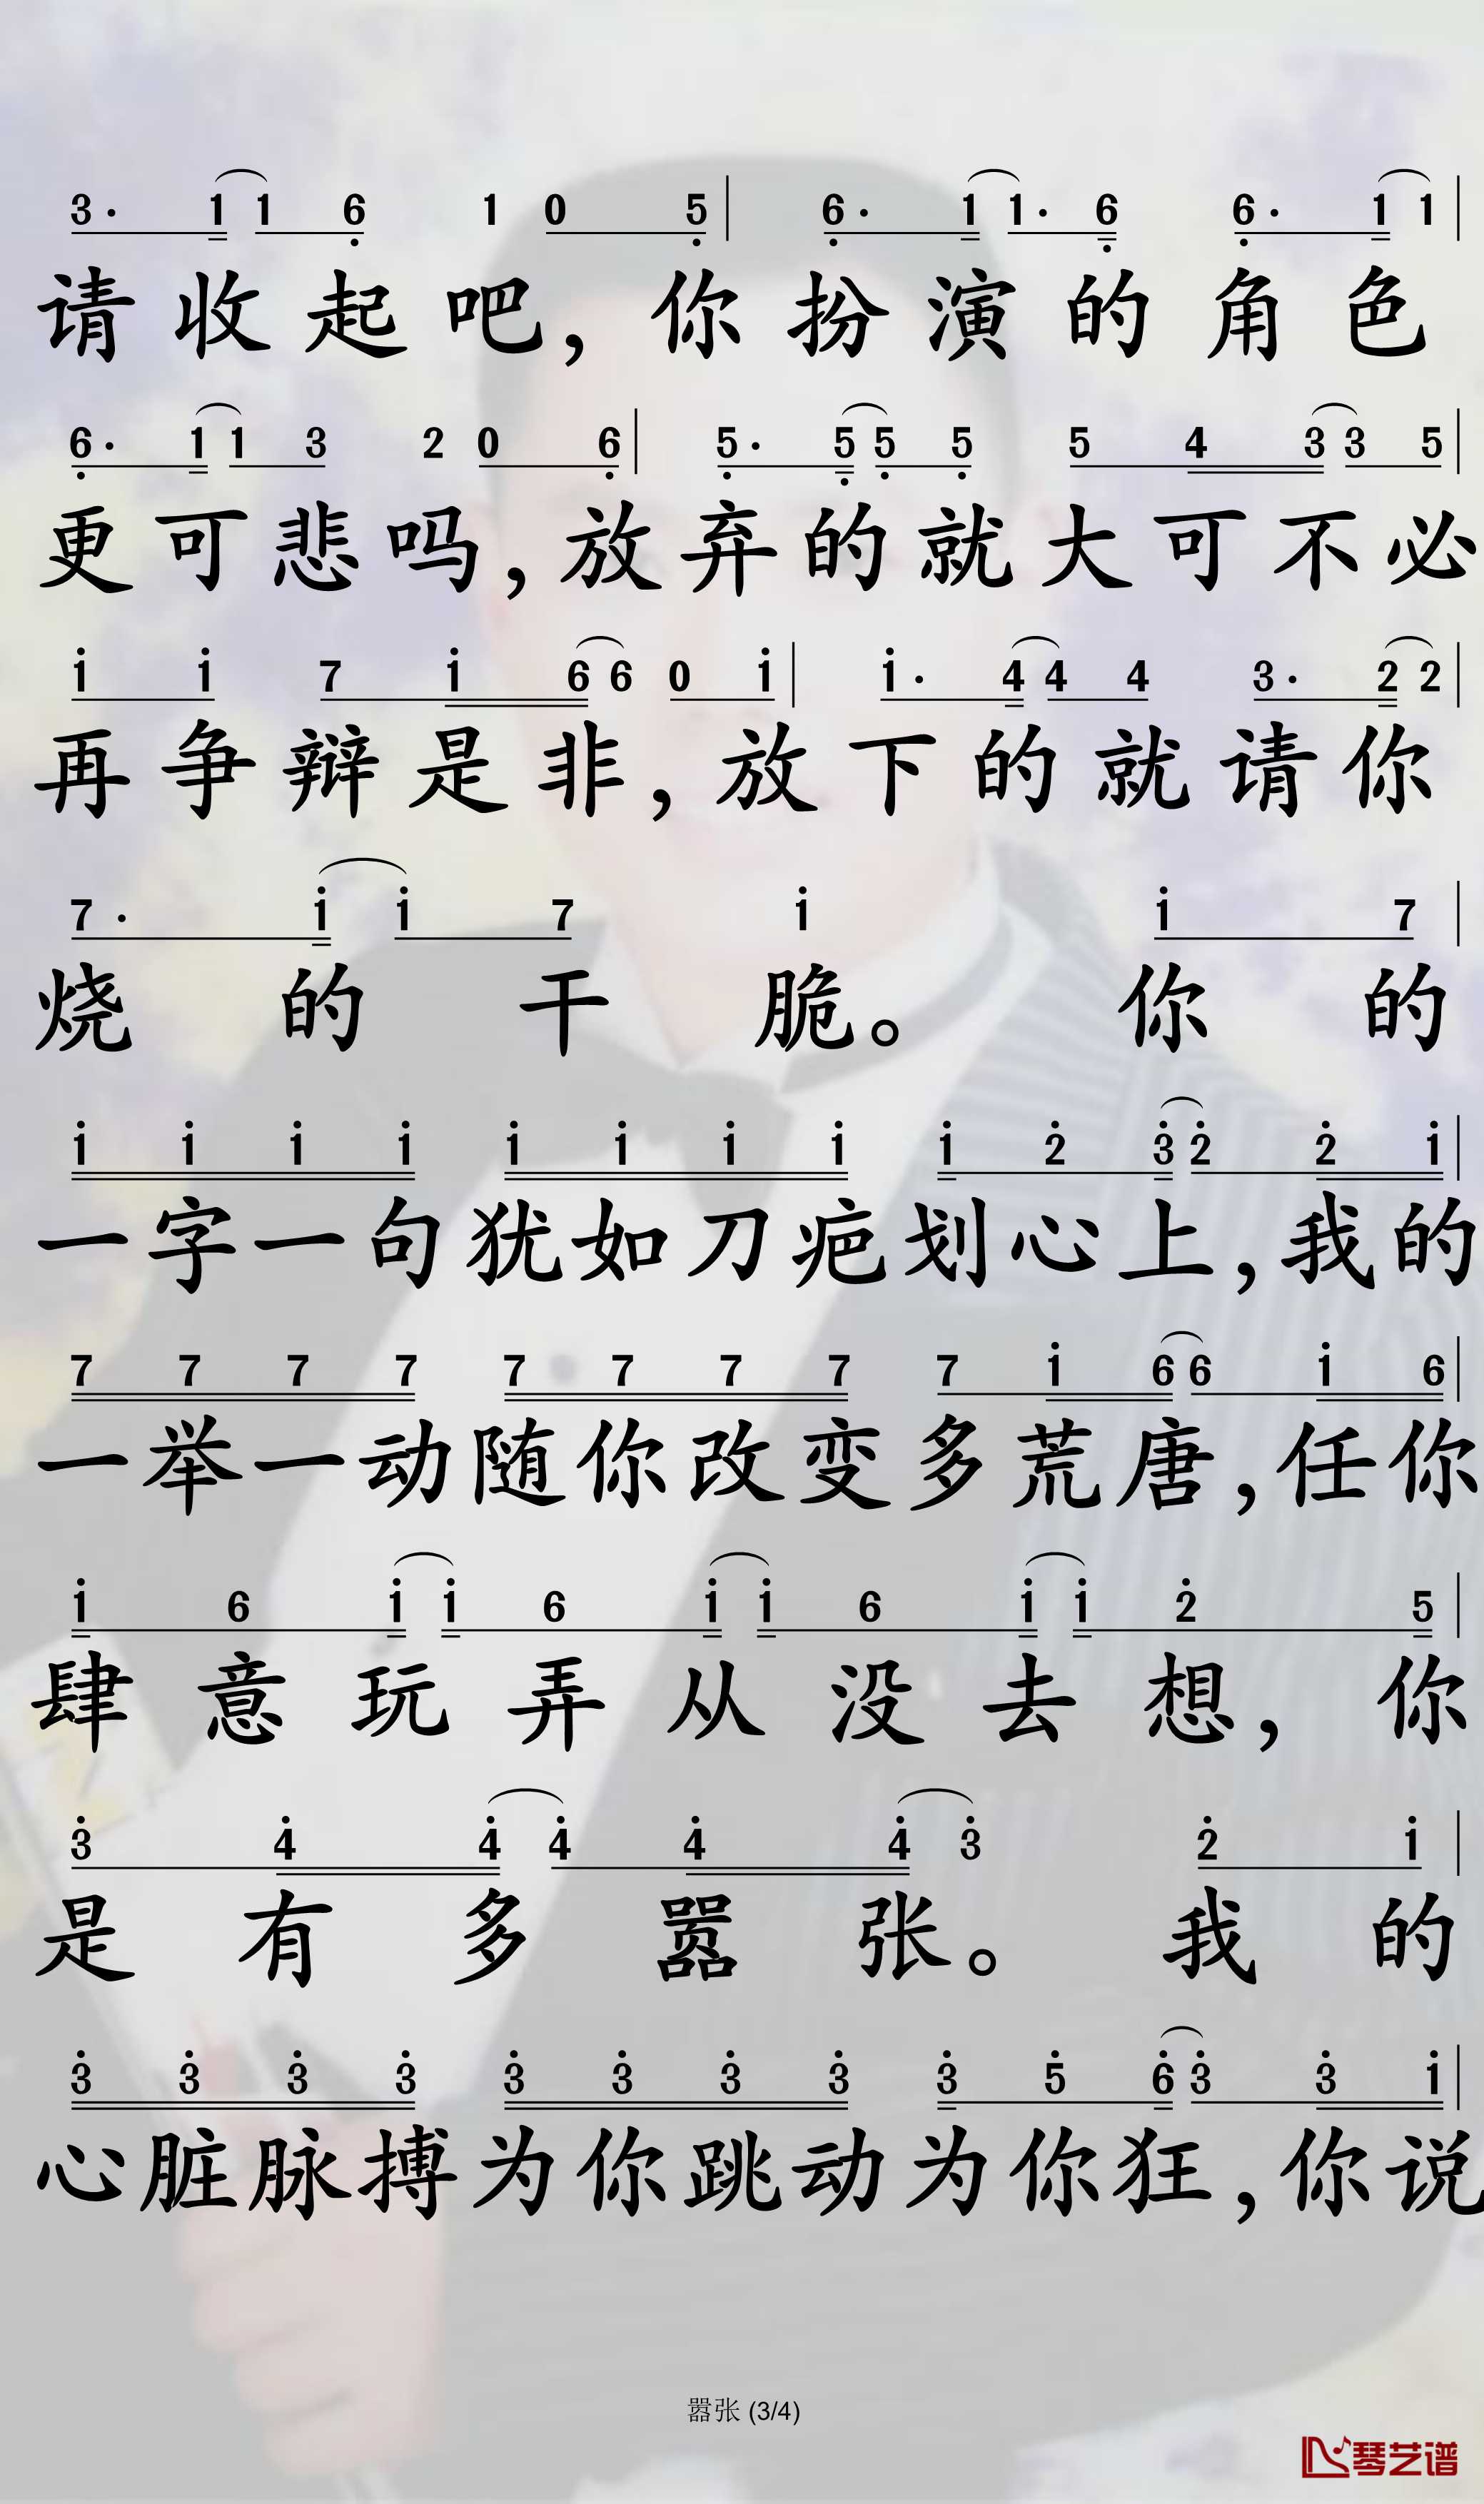 3· 1 1 6 1 0 5 | 6· 1 1· 6 6· 1 1 |
请收起吧，你扮演的角色
6· 1 1 3 2 0 6 | 5· 5 5 5 5 4 3 3 5 |
更可悲吗，放弃的就大可不必
i i 7 i 6 6 0 i | i· 4 4 4 3· 2 2 |
再争辩是非，放下的就请你
7· i i 7 i i 7 |
烧的干脆。你的
i i i i i i i i i 2 3 2 2 i |
一字一句犹如刀疤划心上，我的
7 7 7 7 7 7 7 7 7 i 6 6 i 6 |
一举一动随你改变多荒唐，任你
i 6 i i 6 i i 6 i i 2 5 |
肆意玩弄从没去想，你
3 4 4 4 4 4 3 2 i |
是有多嚣张。我的
3 3 3 3 3 3 3 3 3 5 6 3 3 i |
心脏脉搏为你跳动为你狂，你说
嚣张 (3/4)
琴艺谱